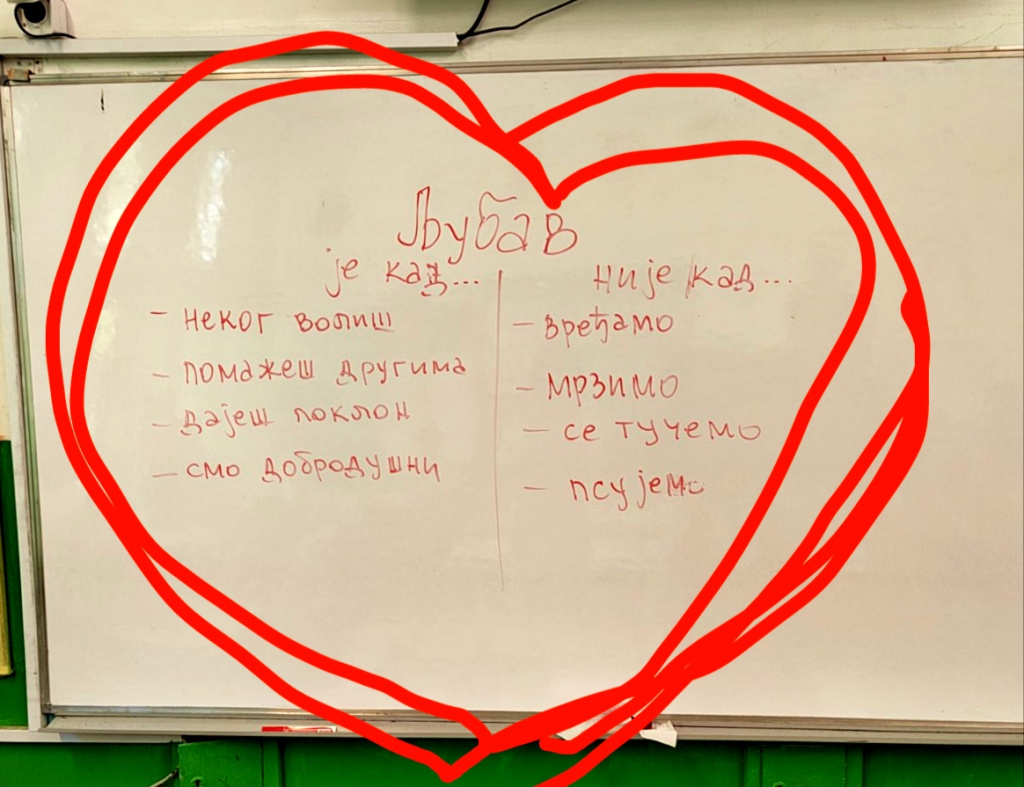 Љубав
је кад...
- неког волиш
- помажеш другима
- дајеш поклон
- смо добродушни
није кад...
- вређамо
- мрзимо
- се тучемо
- псујемо